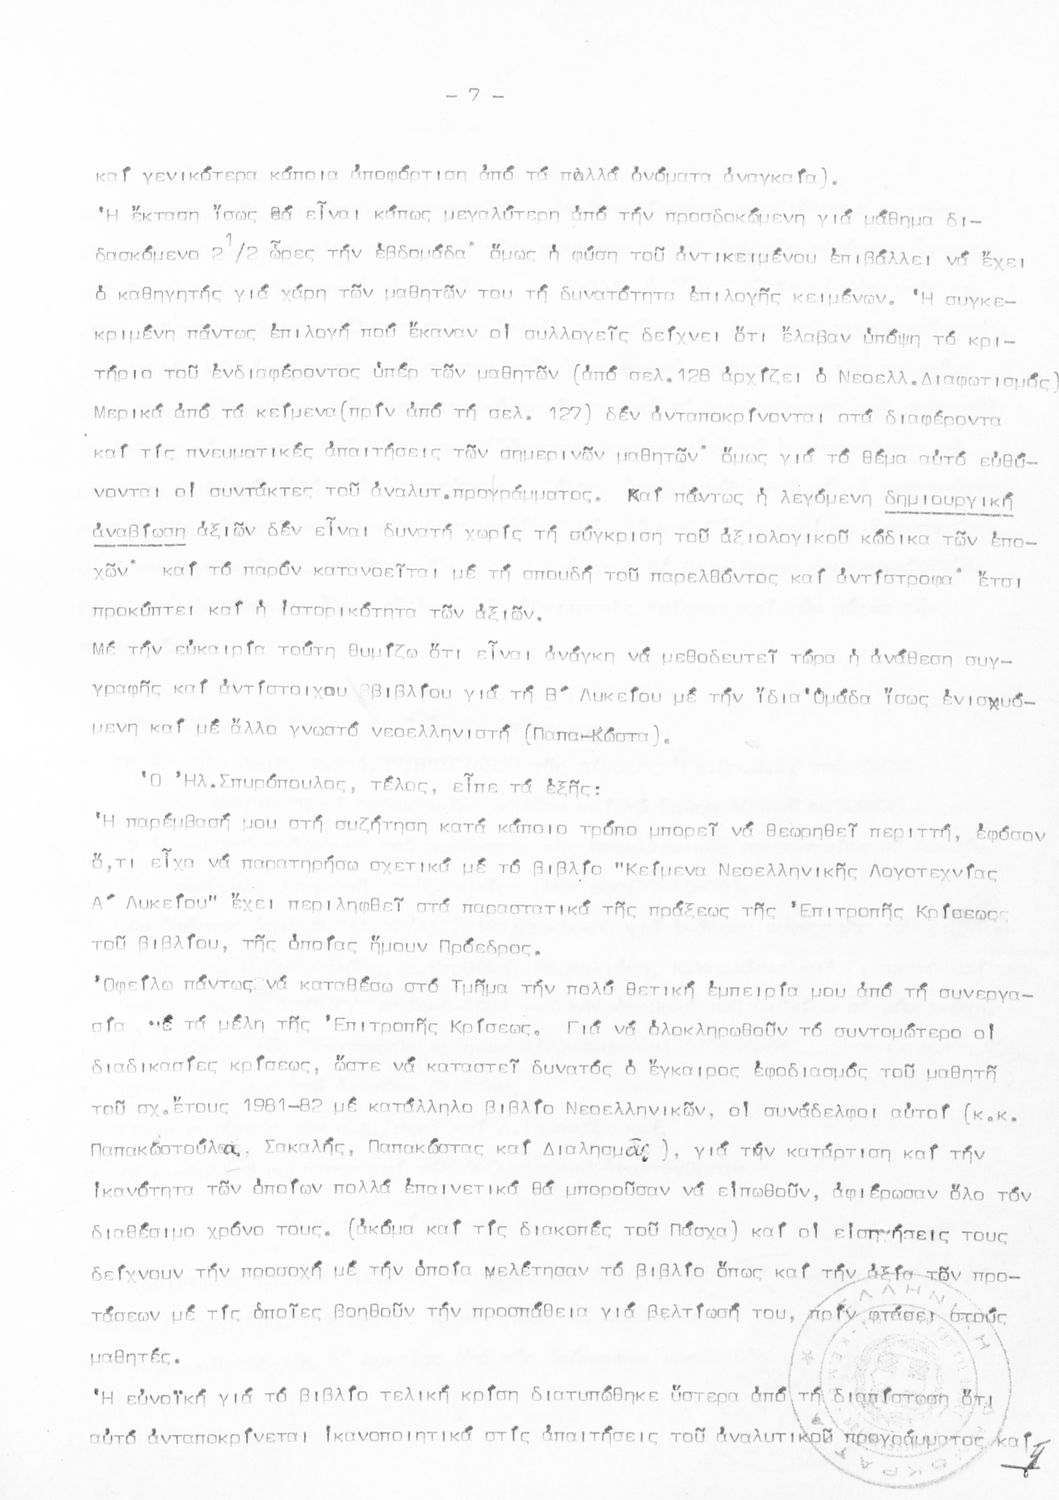 - 7 -
καί γενικότερα κάποια ἀποφόρτιση ἀπό τά πολλά ὀνόματα ἀναγκαῖα).
Ἡ ἔκταση ἴσως θά εἶναι κάπως μεγαλύτερη ἀπό τήν προσδοκώμενη γιά μάθημα δι-
δασκόμενο 2 1/2 ὧρες τήν ἑβδομάδα· ὅμως ἡ φύση τοῦ ἀντικειμένου ἐπιβάλλει νά ἔχει
ὁ καθηγητής γιά χάρη τῶν μαθητῶν του τή δυνατότητα ἐπιλογῆς κειμένων. Ἡ συγκε-
κριμένη πάντως ἐπιλογή πού ἔκαναν οἱ συλλογεῖς δείχνει ὅτι ἔλαβαν ὑπόψη τό κρι-
τήριο τοῦ ἐνδιαφέροντος ὑπέρ τῶν μαθητῶν (ἀπό σελ.128 ἀρχίζει ὁ Νεοελλ.Διαφωτισμός)
Μερικά ἀπό τά κείμενα(πρίν ἀπό τή σελ. 127) δέν ἀνταποκρίνονται στά διαφέροντα
καί τίς πνευματικές ἀπαιτήσεις τῶν σημερινῶν μαθητῶν· ὅμως γιά τό θέμα αὐτό εὐθύ-
νονται οἱ συντάκτες τοῦ ἀναλυτ.προγράμματος. Καί πάντως ἡ λεγόμενη δημιουργική
ἀναβίωση ἀξιῶν δέν εἶναι δυνατή χωρίς τή σύγκριση τοῦ ἀξιολογικοῦ κώδικα τῶν ἐπο-
χῶν· καί τό παρόν κατανοεῖται μέ τή σπουδή τοῦ παρελθόντος καί ἀντίστροφα· ἔτσι
προκύπτει καί ἡ ἱστορικότητα τῶν ἀξιῶν.
Μέ τήν εὐκαιρία τούτη θυμίζω ὅτι εἶναι ἀνάγκη νά μεθοδευτεῖ τώρα ἡ ἀνάθεση συγ-
γραφῆς καί ἀντίστοιχου βιβλίου γιά τή Β´ Λυκείου μέ τήν ἴδια Ὁμάδα ἴσως ἐνισχυό-
μενη καί μέ ἄλλο γνωστό νεοελληνιστή (Παπα-Κώστα).
Ὁ Ἠλ.Σπυρόπουλος, τέλος, εἶπε τά ἑξῆς:
Ἡ παρέμβασή μου στή συζήτηση κατά κάποιο τρόπο μπορεῖ νά θεωρηθεῖ περιττή, ἐφόσον
ὅ,τι εἶχα νά παρατηρήσω σχετικά μέ τό βιβλίο "Κείμενα Νεοελληνικῆς Λογοτεχνίας
Α´ Λυκείου" ἔχει περιληφθεῖ στά παραστατικά τῆς πράξεως τῆς Ἐπιτροπῆς Κρίσεως
τοῦ βιβλίου, τῆς ὁποίας ἤμουν Πρόεδρος.
Ὀφείλω πάντως νά καταθέσω στό Τμῆμα τήν πολύ θετική ἐμπειρία μου ἀπό τή συνεργα-
σία μέ τά μέλη τῆς Ἐπιτροπῆς Κρίσεως. Γιά νά ὁλοκληρωθοῦν τό συντομώτερο οἱ
διαδικασίες κρίσεως, ὥστε νά καταστεῖ δυνατός ὁ ἔγκαιρος ἐφοδιασμός τοῦ μαθητῆ
τοῦ σχ.ἔτους 1981-82 μέ κατάλληλο βιβλίο Νεοελληνικῶν, οἱ συνάδελφοι αὐτοί (κ.κ.
Παπακώστούλα, Σακαλής, Παπακώστας καί Διαλησμᾶς), γιά τήν κατάρτιση καί τήν
ἱκανότητα τῶν ὁποίων πολλά ἐπαινετικά θά μποροῦσαν νά εἰπωθοῦν, ἀφιέρωσαν ὅλο τόν
διαθέσιμο χρόνο τους. (ἀκόμα καί τίς διακοπές τοῦ Πάσχα) καί οἱ εἰσηγήσεις τους
δείχνουν τήν προσοχή μέ τήν ὁποία μελέτησαν τό βιβλίο ὅπως καί τήν ἀξία τῶν προ-
τάσεων μέ τίς ὁποῖες βοηθοῦν τήν προσπάθεια γιά βελτίωσή του, πρίν φτάσει στούς
μαθητές.
Ἡ εὐνοϊκή γιά τό βιβλίο τελική κρίση διατυπώθηκε ὕστερα ἀπό τή διαπίστωση ὅτι
αὐτό ἀνταποκρίνεται ἱκανοποιητικά στίς ἀπαιτήσεις τοῦ ἀναλυτικοῦ προγράμματος καί